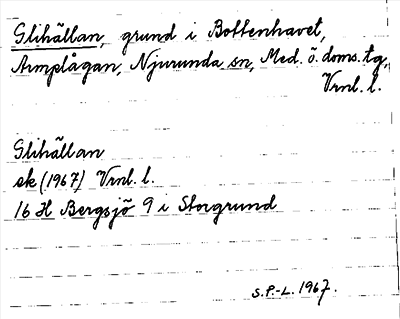 Glihällan, grund i Bottenhavet,
Armplågan, Njurunda sn, Med. ö. doms. tg,
Vrnl. l.
Glihällan
sk (1967) Vrnl. l.
16 H Bergsjö 9 i Storgrund
S.P.-L. 1967.